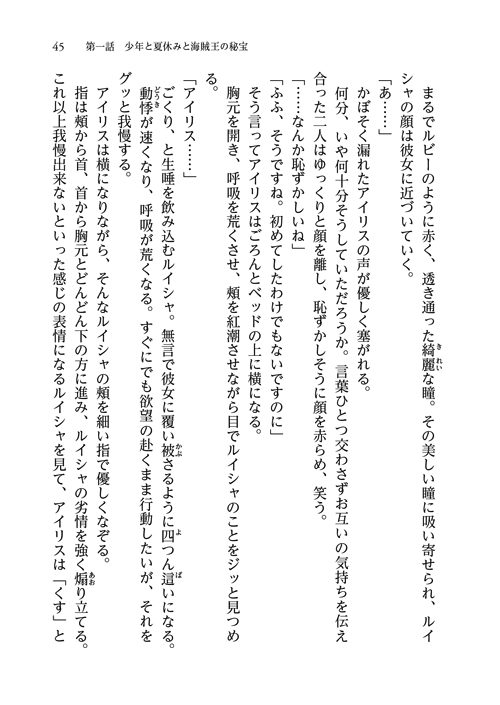 45　第一話　少年と夏休みと海賊王の秘宝
　まるでルビーのように赤く、透き通った綺麗な瞳。その美しい瞳に吸い寄せられ、ルイ
シャの顔は彼女に近づいていく。
「あ……」
　かぼそく漏れたアイリスの声が優しく塞がれる。
　何分、いや何十分そうしていただろうか。言葉ひとつ交わさずお互いの気持ちを伝え
合った二人はゆっくりと顔を離し、恥ずかしそうに顔を赤らめ、笑う。
「……なんか恥ずかしいね」
「ふふ、そうですね。初めてしたわけでもないですのに」
　そう言ってアイリスはごろんとベッドの上に横になる。
　胸元を開き、呼吸を荒くさせ、頰を紅潮させながら目でルイシャのことをジッと見つめ
る。
「アイリス……」
　ごくり、と生唾を飲み込むルイシャ。無言で彼女に覆い被さるように四つん這いになる。
　動悸が速くなり、呼吸が荒くなる。すぐにでも欲望の赴くまま行動したいが、それを
グッと我慢する。
　アイリスは横になりながら、そんなルイシャの頰を細い指で優しくなぞる。
　指は頰から首、首から胸元とどんどん下の方に進み、ルイシャの劣情を強く煽り立てる。
これ以上我慢出来ないといった感じの表情になるルイシャを見て、アイリスは「くす」と